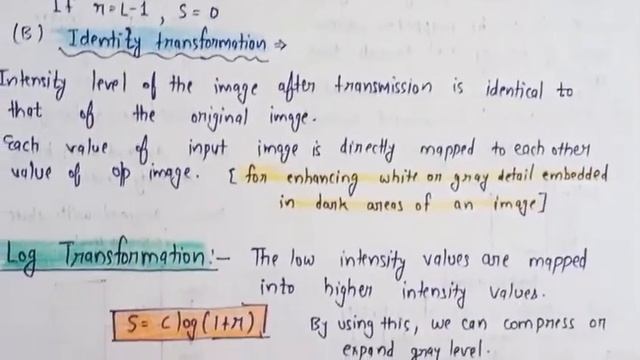 If r=L-1, S=0
(B) Identity transformation ⇒
Intensity level of the image after transmission is identical to
that of the original image.
Each value of input image is directly mapped to each other
value of o/p image. [for enhancing white or gray detail embedded
in dark areas of an image]
Log Transformation:- The low intensity values are mapped
into higher intensity values.
S= c log(1+r) By using this, we can compress or
expand gray level.